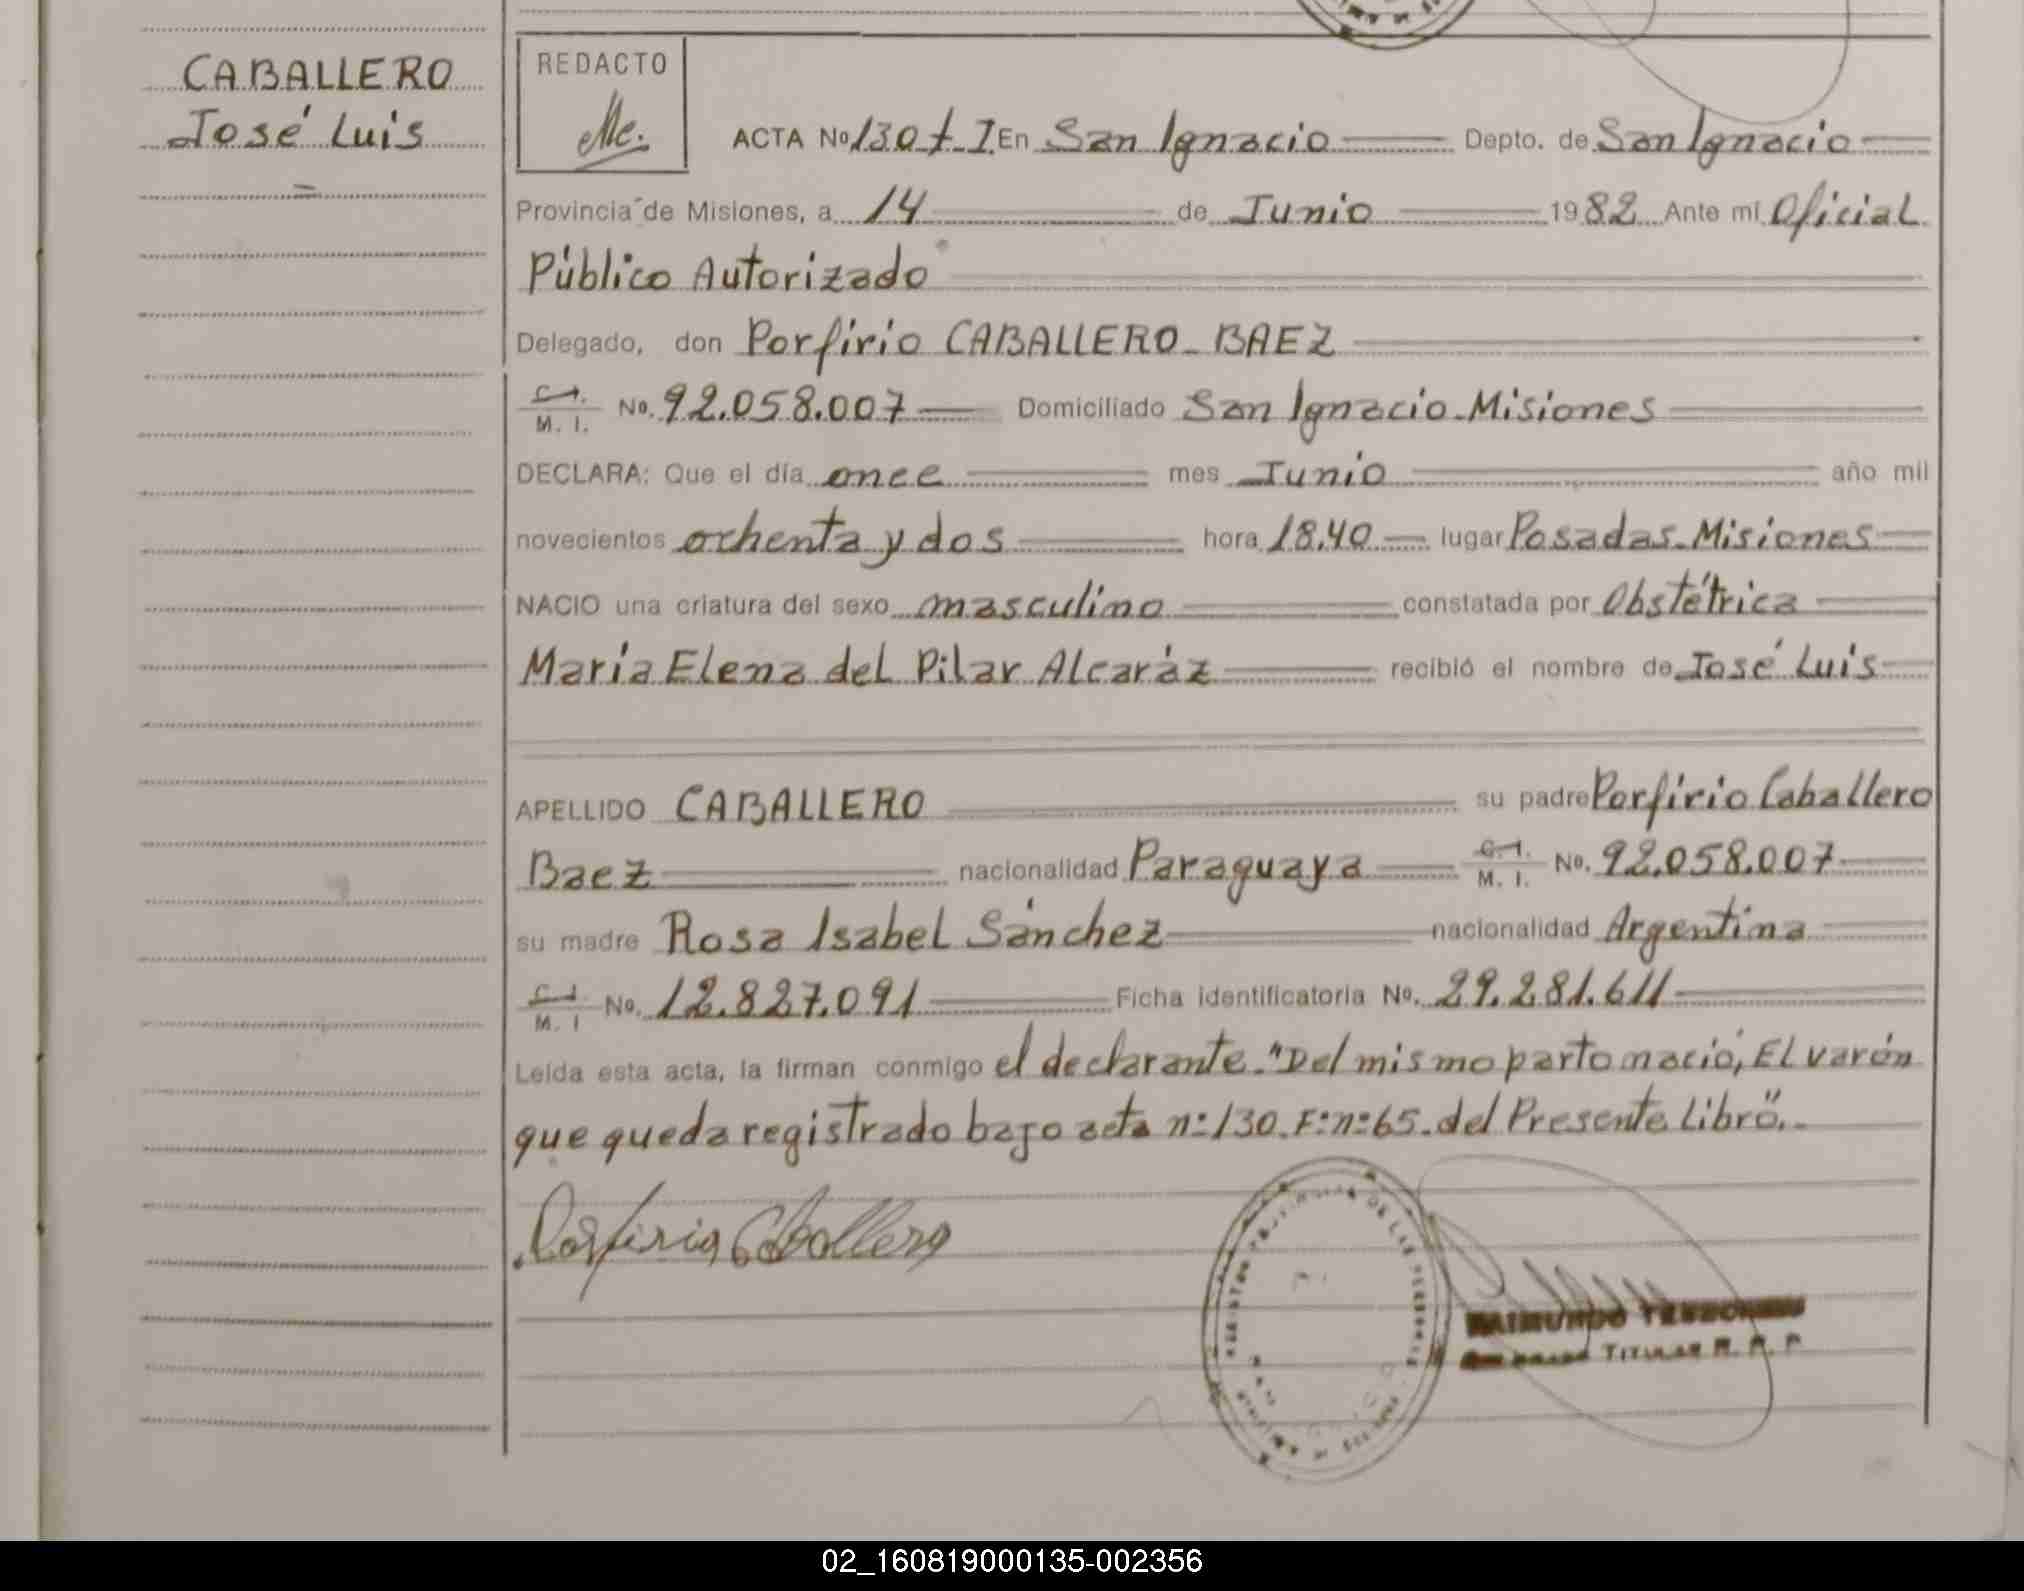 CABALLERO
José Luis
REDACTO
ACTA No 130 t I En San Ignacio Depto. de San Ignacio
Provincia de Misiones, a 14 de Junio 1982 Ante mí Oficial
Público Autorizado
Delegado, don Porfirio CABALLERO-BAEZ
C.I. M. I. No. 92.058.007 Domiciliado San Ignacio-Misiones
DECLARA: Que el día once mes Junio año mil
novecientos ochenta y dos hora 18.40 lugar Posadas-Misiones
NACIO una criatura del sexo masculino constatada por Obstétrica
María Elena del Pilar Alcaráz recibió el nombre de José Luis
APELLIDO CABALLERO su padre Porfirio Caballero
Baez nacionalidad Paraguaya C.I. M. I. No. 92.058.007
su madre Rosa Isabel Sánchez nacionalidad Argentina
C.I. M. I No. 12.827.091 Ficha identificatoria No. 29.281.611
Leída esta acta, la firman conmigo el declarante. "Del mismo parto nació, El varón
que queda registrado bajo acta n:130.F:n:65.del Presente Libro".-
Porfirio Caballero
RAIMUNDO
TITULAR R. P. P.
02_160819000135-002356